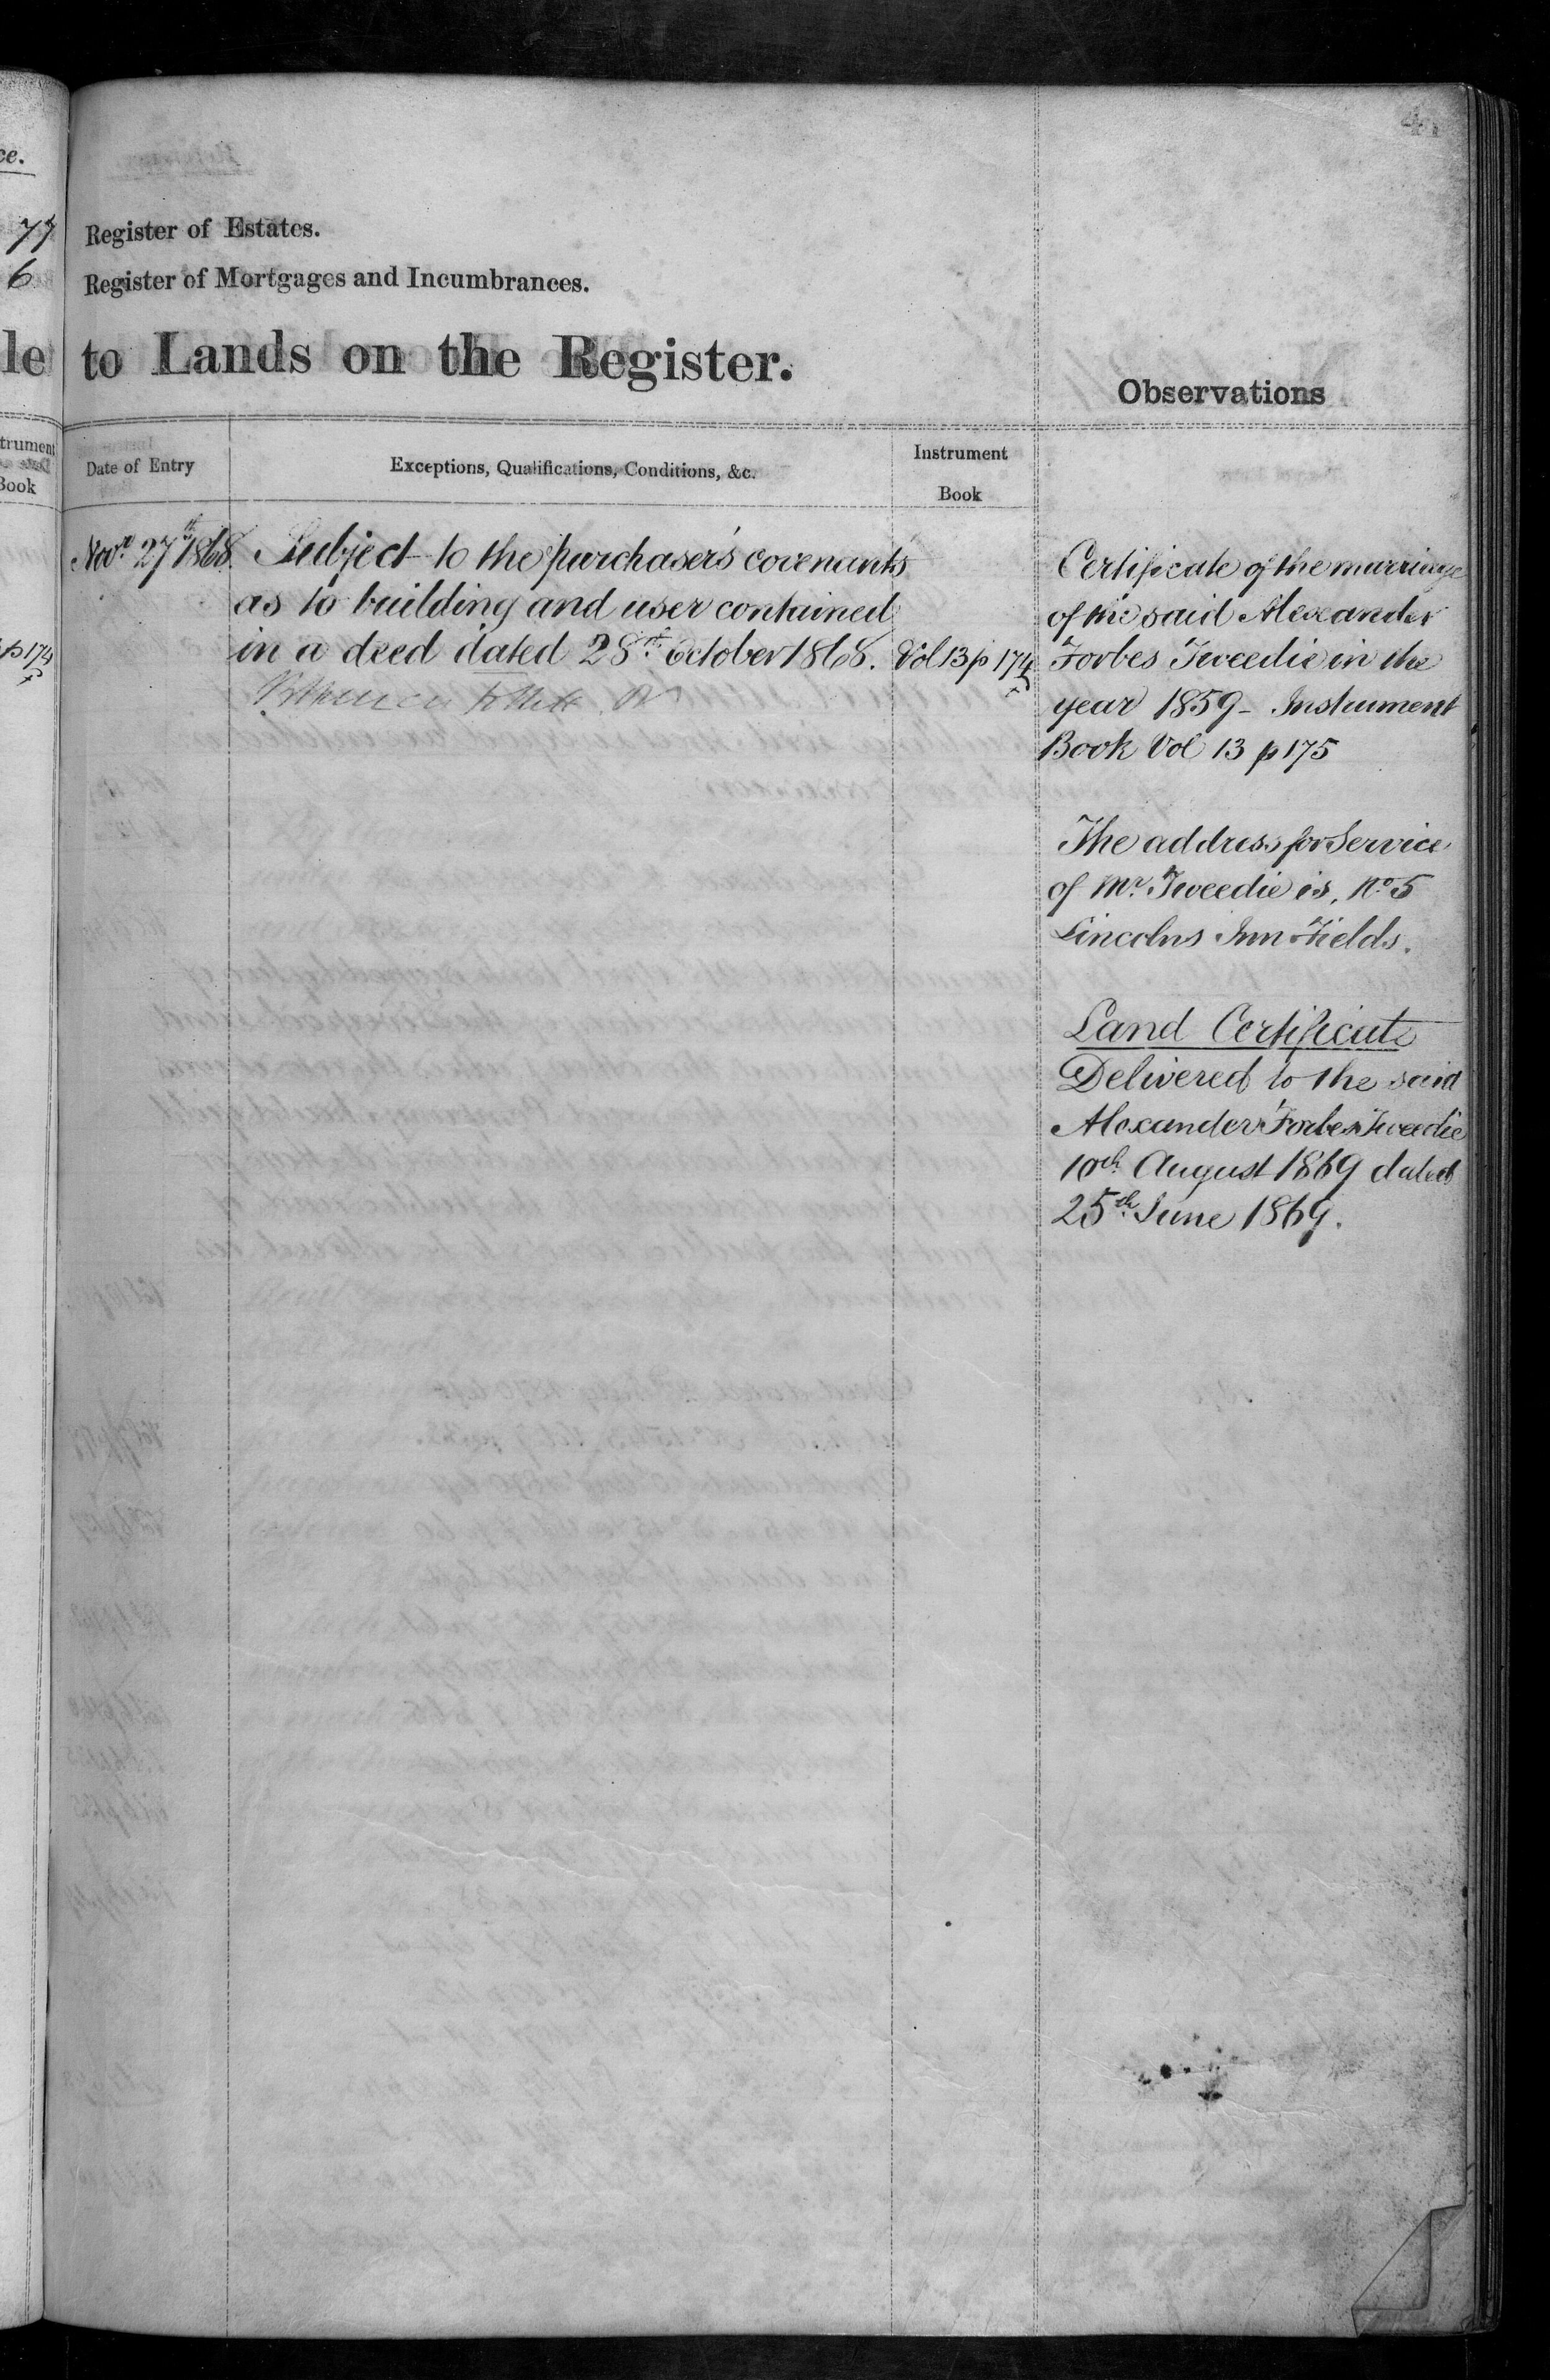 ce.
77
6
le
trument
Book
p 174
Register of Estates.
Register of Mortgages and Incumbrances.
to Lands on the Register.
Observations
Date of Entry
Exceptions, Qualifications, Conditions, &c.
Instrument
Book
Novr. 27th 1868.
Subject to the purchaser's covenants
as to building and user contained
in a deed dated 28th October 1868.
Vol 13 p 174
Certificate of the marriage
of the said Alexander
Forbes Tweedie in the
year 1859 - Instrument
Book Vol 13 p 175
The address for Service
of Mr. Tweedie is, No. 5
Lincolns Inn Fields.
Land Certificate
Delivered to the said
Alexander Forbes Tweedie
10th August 1869 dated
25th June 1869.